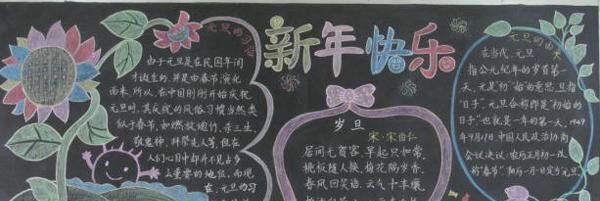 元旦的习俗
由于元旦是在民国年间
才诞生的,并是由春节演化
而来,所以,在中国刚刚开始庆祝
元旦时,其庆祝的风俗习惯当然类
似于春节,如燃放炮竹、杀三生、
敬鬼神、拜祭先人等,但在
人们心目中却并不见占多
么重要的地位,而现
在,元旦的习
新年快乐
岁旦
宋·宋伯仁
居间无贺客,早起只如常。
桃板随人换,梅花隔岁香。
春风回笑语,云气卜丰穰。
元旦的由来
在当代,元旦
指公元纪年的岁首第一
天。元是“初”“始”的意思,旦指
“日子”,元旦合称即是“初始的
日子”,也就是一年的第一天。1949
年9月27日,中国人民政治协商
会议决议:农历正月初一改
称“春节”,阳历一月一日定为元旦。